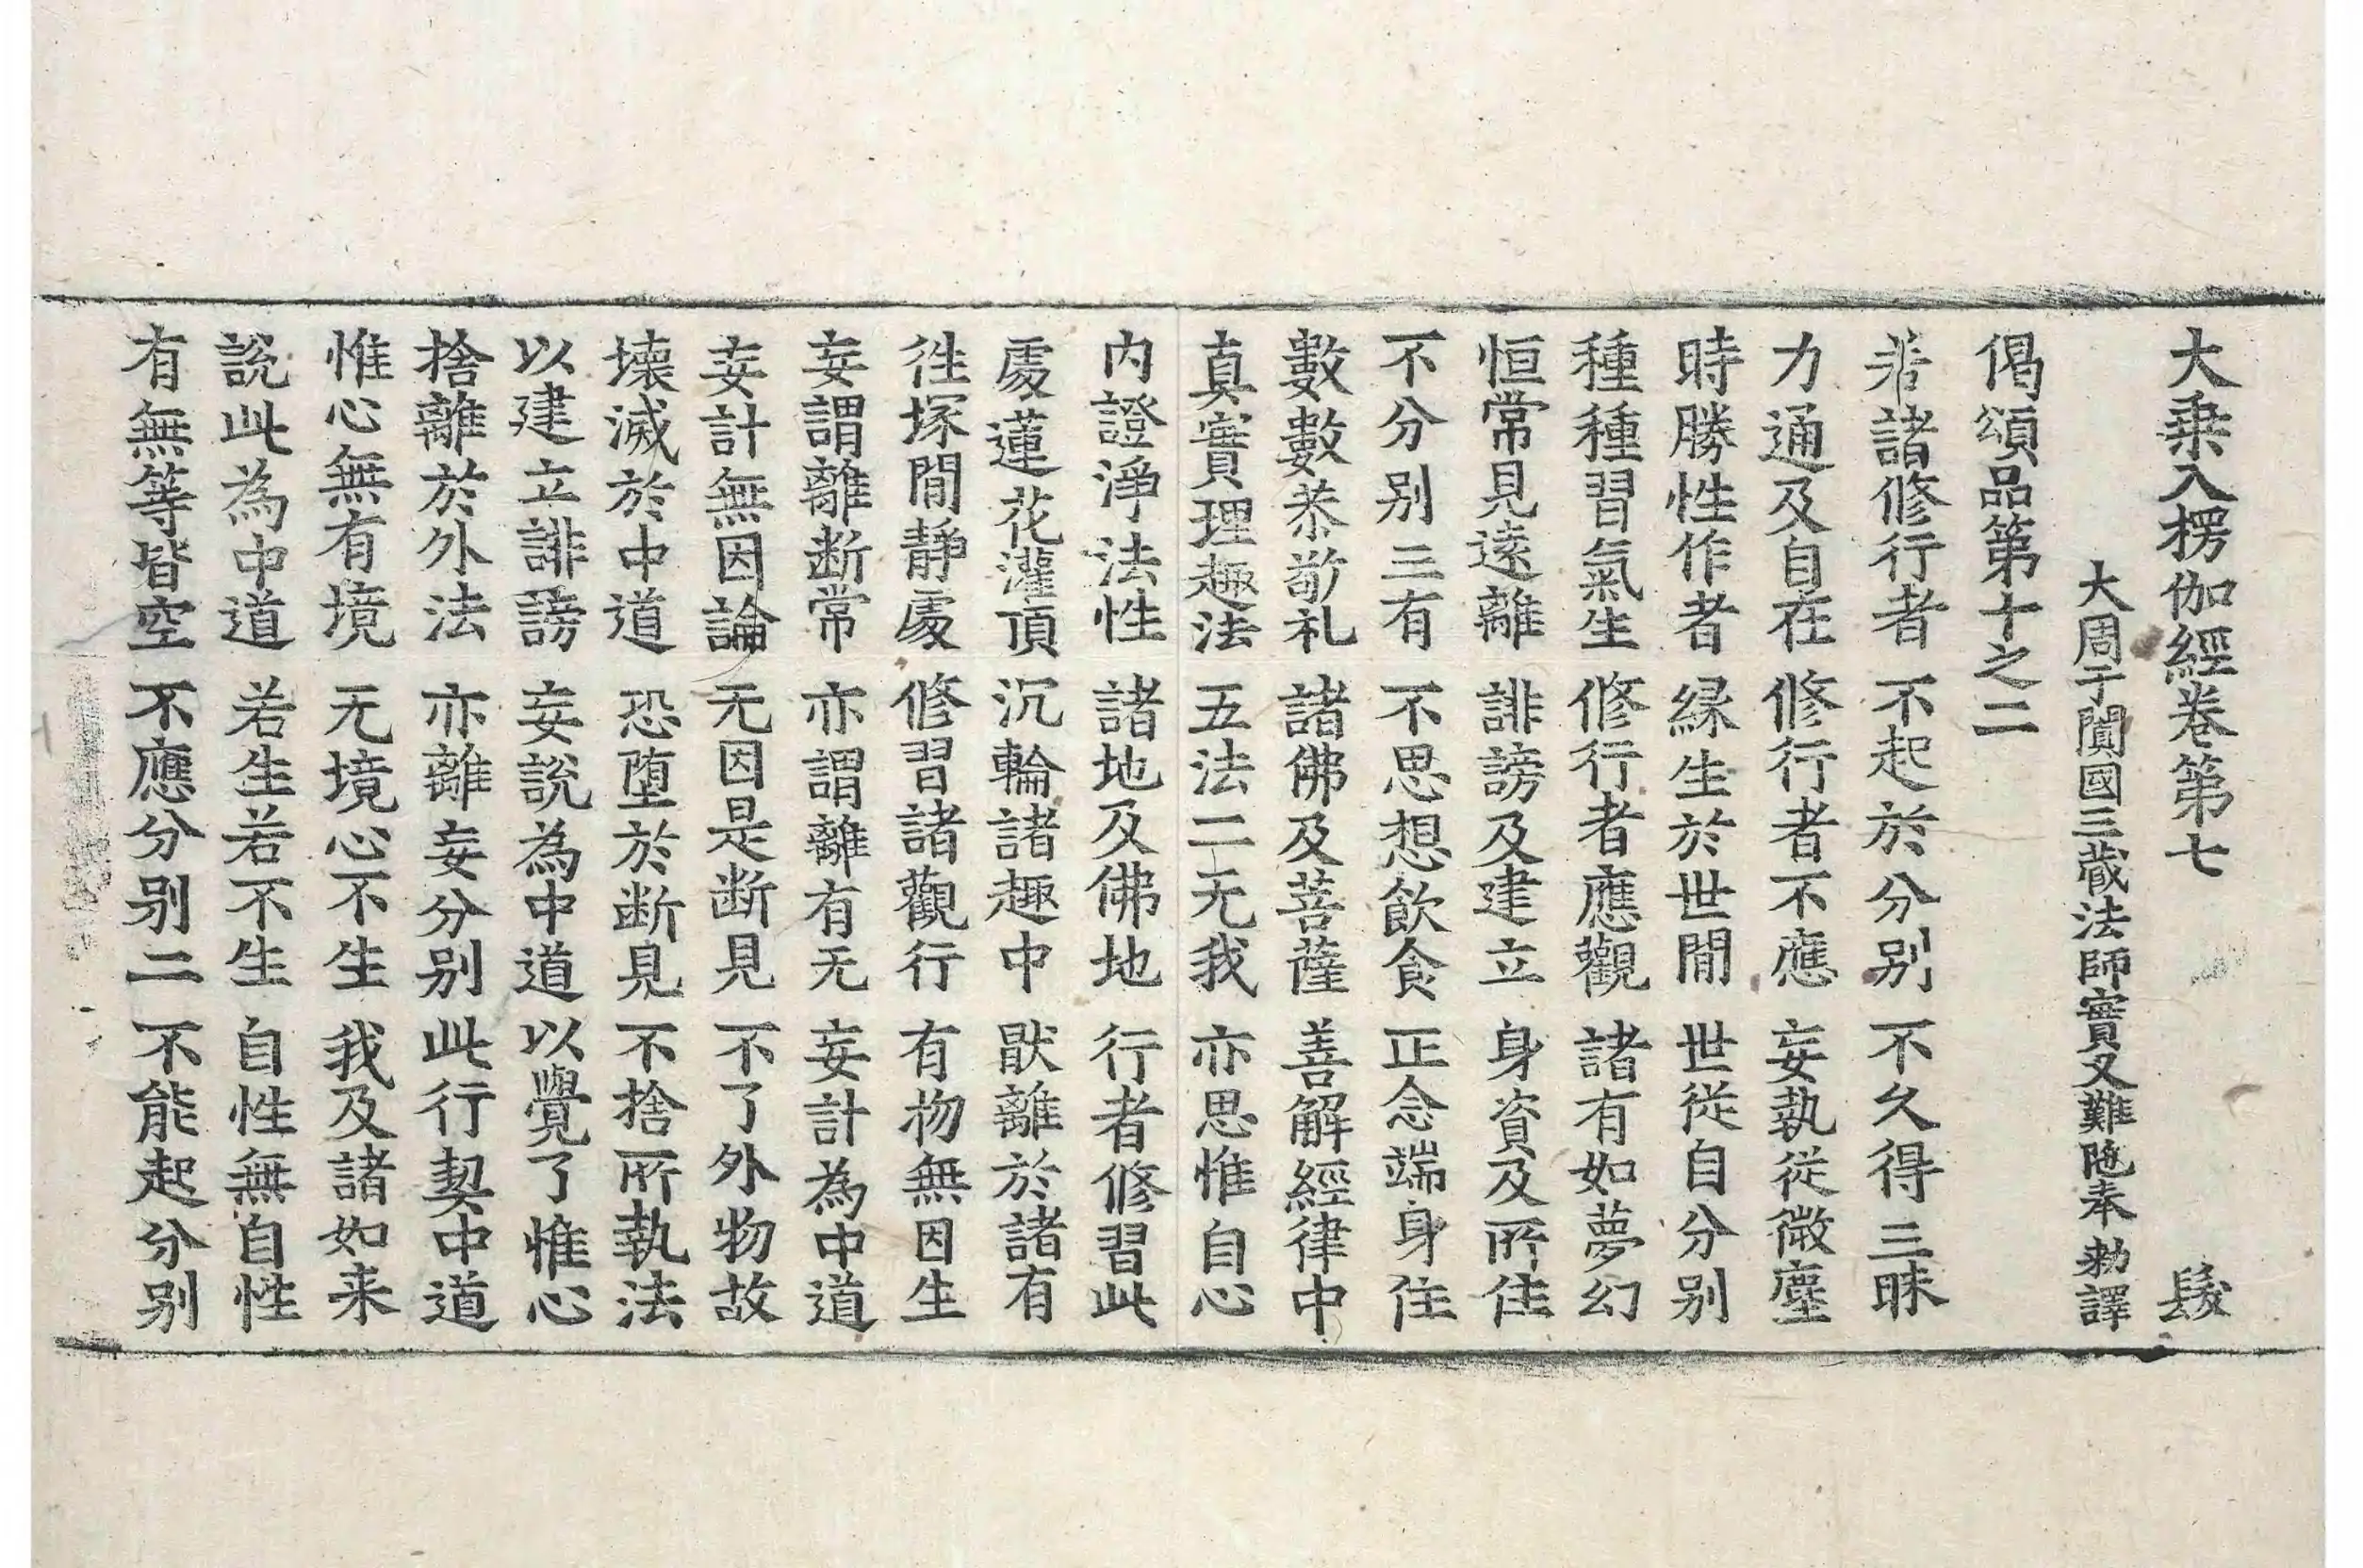 大乗入楞伽經卷第七 髮
大周于闐國三藏法師實叉難陁奉 勑譯
偈頌品第十之二
若諸修行者 不起於分別 不久得三昧
力通及自在 修行者不應 妄執從微塵
時勝性作者 縁生於世間 世從自分別
種種習氣生 修行者應觀 諸有如夢幻
恒常見遠離 誹謗及建立 身資及所住
不分別三有 不思想飲食 正念端身住
數數恭敬礼 諸佛及菩薩 善解經律中
真實理趣法 五法二无我 亦思惟自心
内證淨法性 諸地及佛地 行者修習此
處蓮花灌頂 沉輪諸趣中 猒離於諸有
往塚間靜處 修習諸觀行 有物無因生
妄謂離断常 亦謂離有无 妄計為中道
妄計無因論 无因是断見 不了外物故
壊滅於中道 恐堕於断見 不捨所執法
以建立誹謗 妄說為中道 以覺了惟心
捨離於外法 亦離妄分別 此行契中道
惟心無有境 无境心不生 我及諸如来
說此為中道 若生若不生 自性無自性
有無等皆空 不應分別二 不能起分別